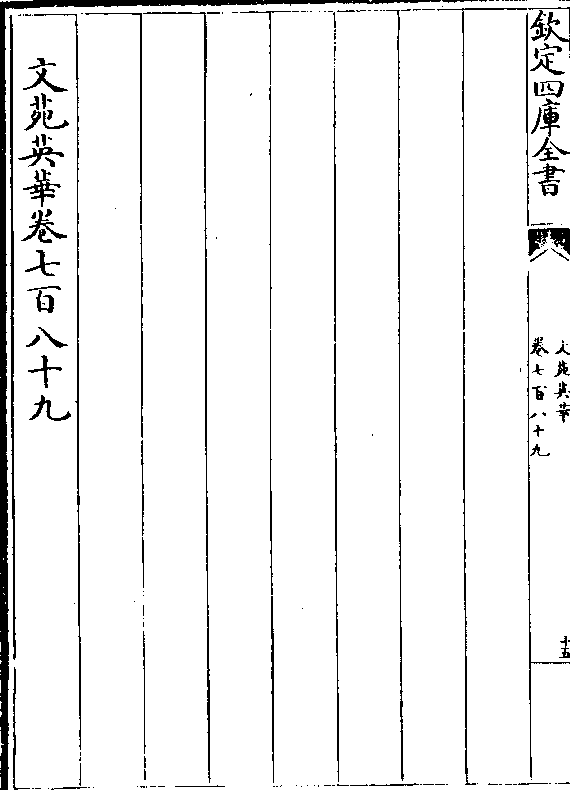 欽定四庫全書
文苑英華
卷七百八十九
十五
文苑英華卷七百八十九